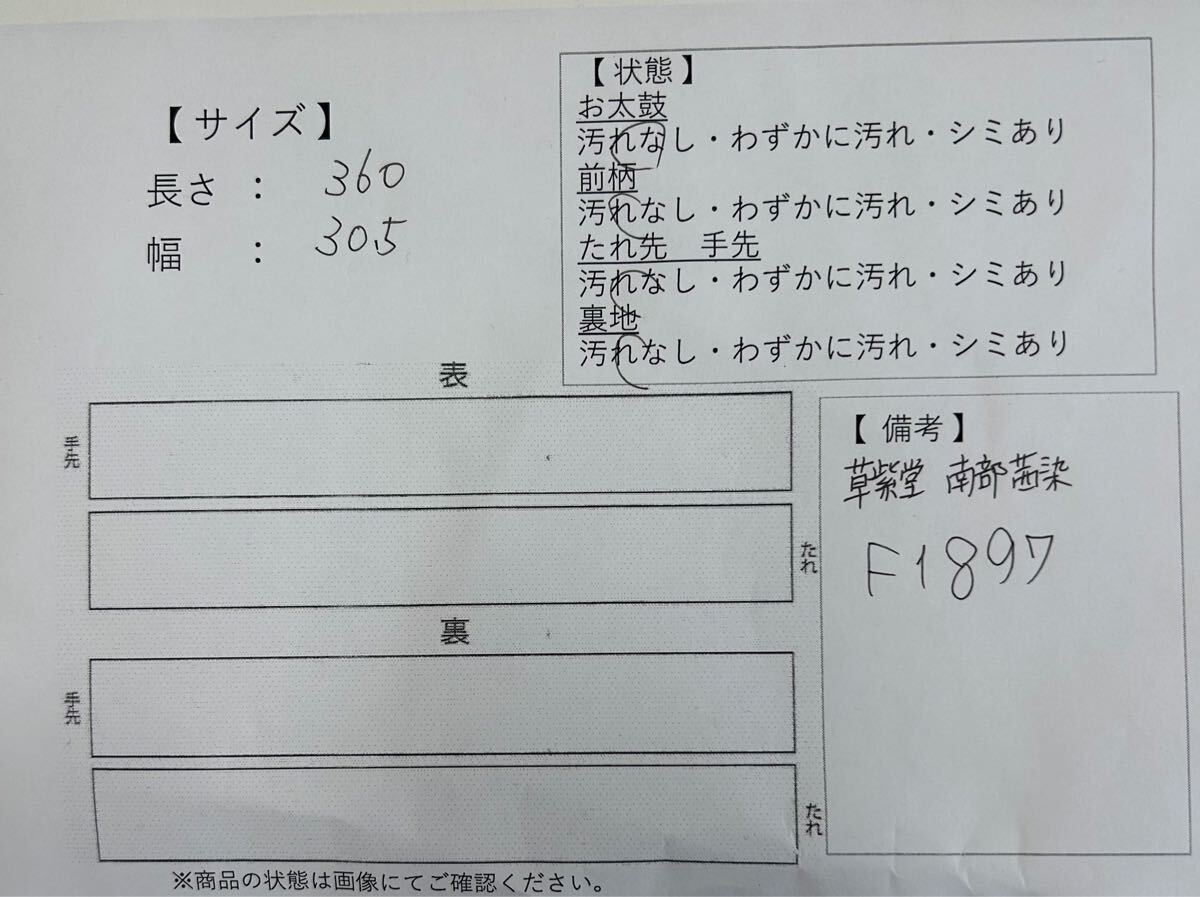 【サイズ】
長さ : 360
幅 : 30.5
【状態】
お太鼓
汚れなし・わずかに汚れ・シミあり
前柄
汚れなし・わずかに汚れ・シミあり
たれ先 手先
汚れなし・わずかに汚れ・シミあり
裏地
汚れなし・わずかに汚れ・シミあり
表
手先
たれ
裏
手先
たれ
【備考】
草紫堂 南部茜染
F1897
※商品の状態は画像にてご確認ください。